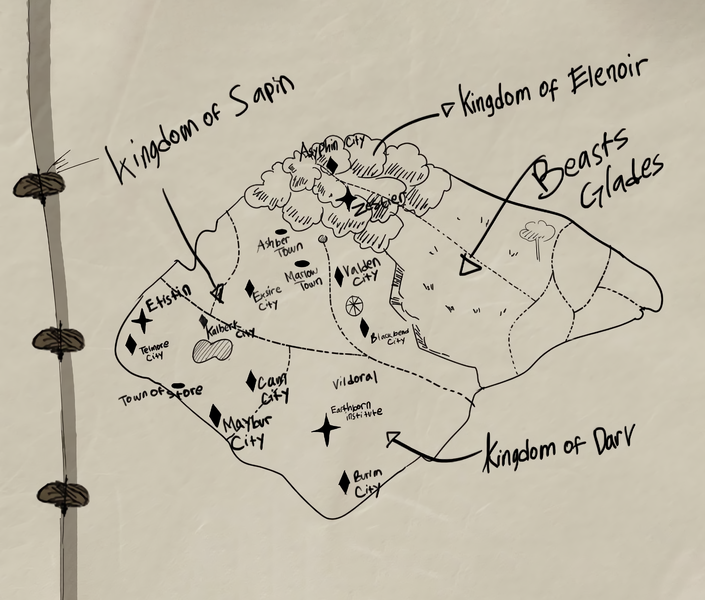 Kingdom of Sapin
Kingdom of Elenoir
Beasts
Glades
Asyphin City
Zestier
Ashber
Town
Marlow
Town
Valden
City
Exsire
City
Etistin
Kalberk City
Telmore
City
Blackbend
City
Town of Store
Carn
City
Vildoral
Earthborn
institute
Maybur
City
Kingdom of Darv
Burim
City